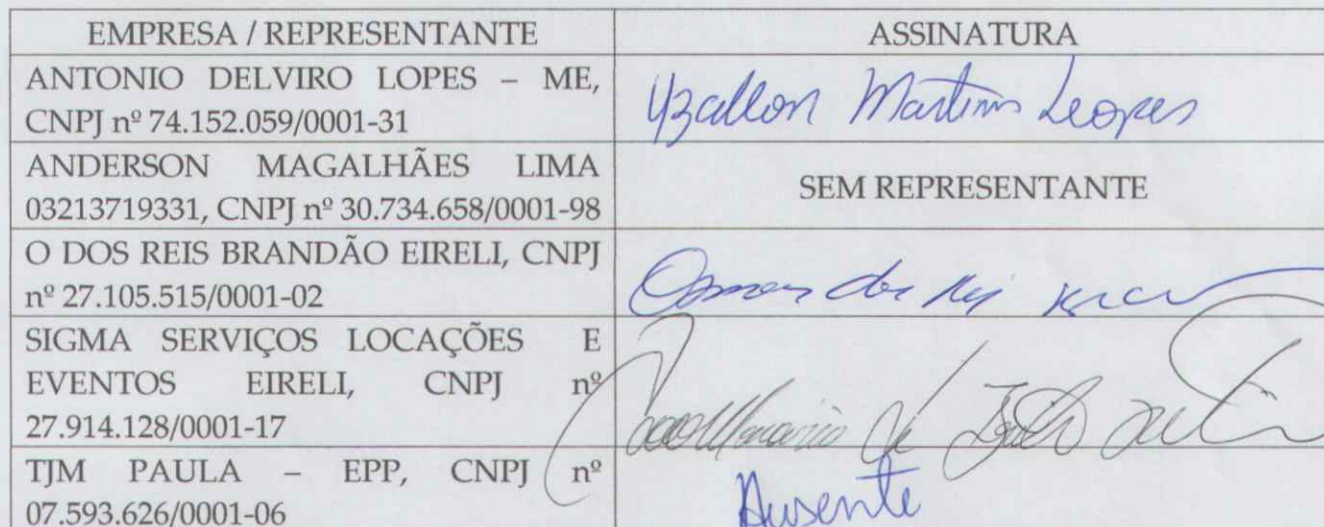 EMPRESA / REPRESENTANTE
ASSINATURA
ANTONIO DELVIRO LOPES – ME,
CNPJ nº 74.152.059/0001-31
Martins Leopes
ANDERSON MAGALHÃES LIMA
03213719331, CNPJ nº 30.734.658/0001-98
SEM REPRESENTANTE
O DOS REIS BRANDÃO EIRELI, CNPJ
nº 27.105.515/0001-02
SIGMA SERVIÇOS LOCAÇÕES E
EVENTOS EIRELI, CNPJ nº
27.914.128/0001-17
TJM PAULA – EPP, CNPJ nº
07.593.626/0001-06
Ausente